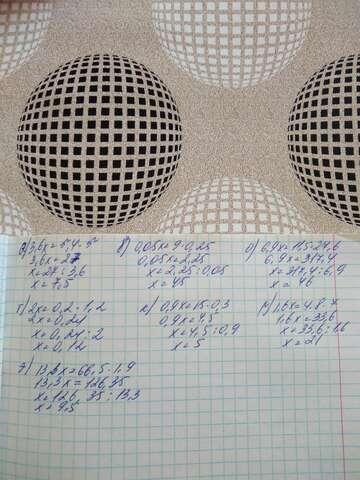 а) 3,6x=5,4·5
3,6x=27
x=27:3,6
x=7,5
в) 0,05x=9·0,25
0,05x=2,25
x=2,25:0,05
x=45
6,9x=317,4
x=317,4:6,9
x=46
2x=0,2·1,2
2x=0,24
x=0,24:2
x=0,12
0,9x=15·0,3
0,9x=4,5
x=4,5:0,9
x=5
1,6x=4,8·7
1,6x=33,6
x=33,6:1,6
x=21
13,3x=66,5·1,9
13,3x=126,35
x=126,35:13,3
x=9,5